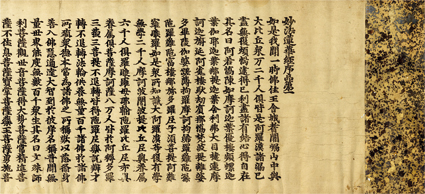 妙法蓮華經序品第一
如是我聞一時佛住王舍城耆闍崛山中與
大比丘衆万二千人俱皆是阿羅漢諸漏已
盡無復煩惱逮得己利盡諸有結心得自在
其名曰阿若憍陳如摩訶迦葉優樓頻螺迦
葉伽耶迦葉那提迦葉舍利弗大目揵連摩
訶迦旃延阿㝹樓馱劫賓那憍梵波提離婆
多畢陵伽婆蹉薄拘羅摩訶拘絺羅難陀孫
陀羅難陀富樓那彌多羅尼子須菩提阿難
羅睺羅如是衆所知識大阿羅漢等復有學
無學二千人摩訶波闍波提比丘尼與眷屬
六千人俱羅睺羅母耶輸陀羅比丘尼亦與
眷屬俱菩薩摩訶薩八万人皆於阿耨多羅
三藐三菩提不退轉皆得陀羅尼樂說辯才
轉不退轉法輪供養無量百千諸佛於諸佛
所殖衆德本常爲諸佛之所稱歎以慈修身
善入佛慧通達大智到於彼岸名稱普聞無
量世界能度無數百千衆生其名曰文殊師
利菩薩觀世音菩薩得大勢菩薩常精進菩
薩不休息菩薩寶掌菩薩藥王菩薩勇施菩